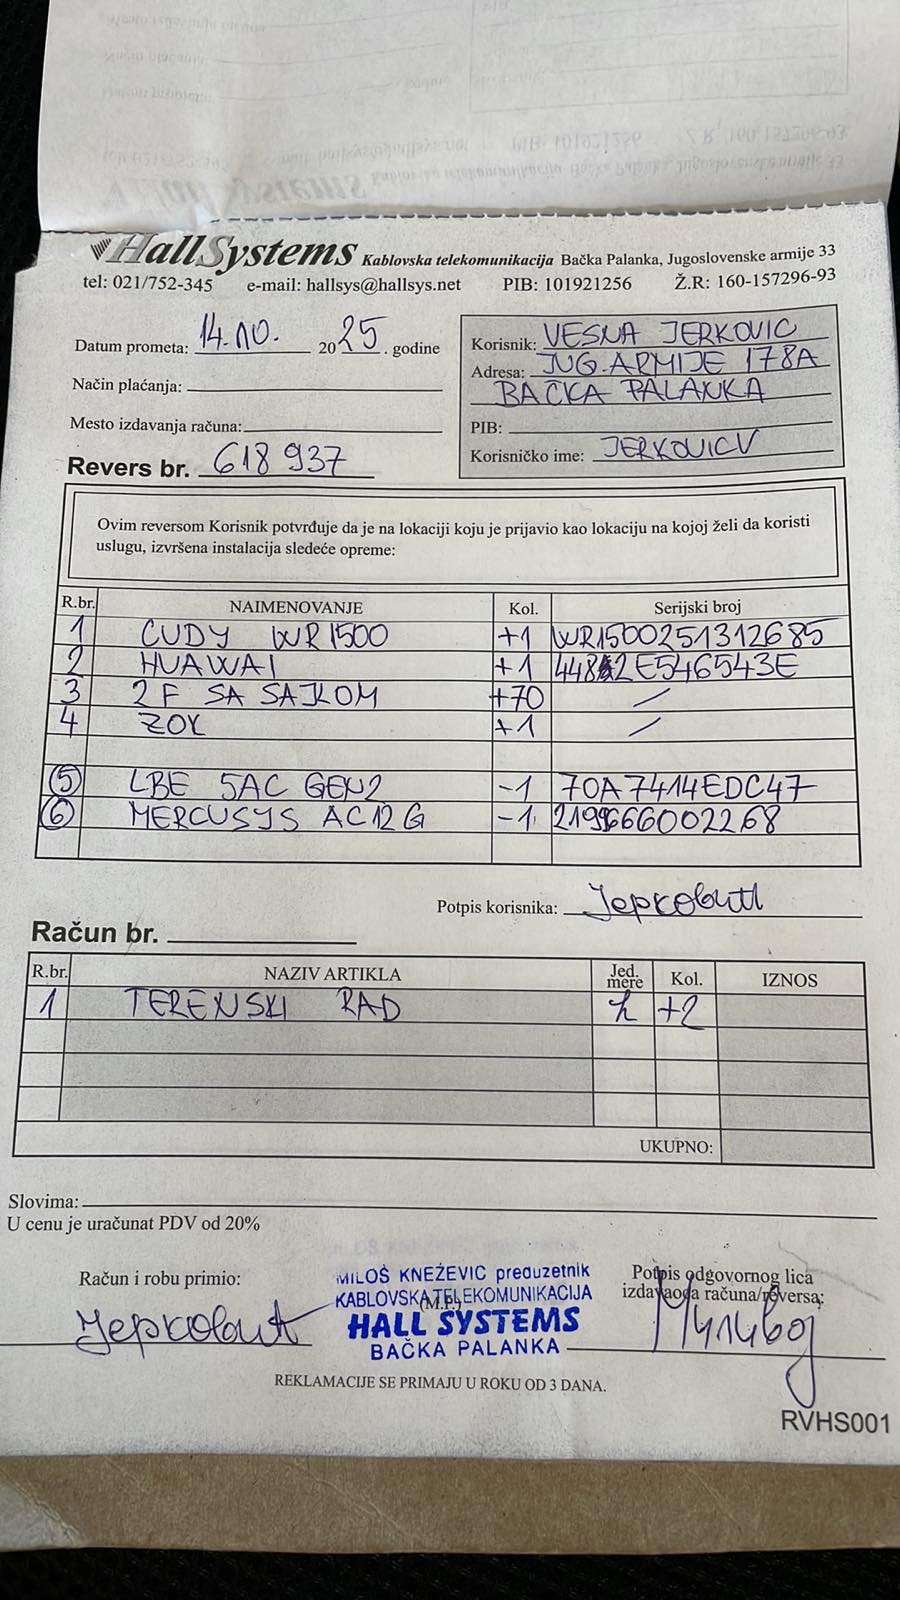 HallSystems Kablovska telekomunikacija Bačka Palanka, Jugoslovenske armije 33
tel: 021/752-345 e-mail: hallsys@hallsys.net PIB: 101921256 Ž.R: 160-157296-93
Datum prometa: 14.10. 2025. godine
Način plaćanja:
Mesto izdavanja računa:
Revers br. 618937
Korisnik: VESNA JERKOVIC
Adresa: JUG.ARMIJE 178A
BAČKA PALANKA
PIB:
Korisničko ime: JERKOVICV
Ovim reversom Korisnik potvrđuje da je na lokaciji koju je prijavio kao lokaciju na kojoj želi da koristi
uslugu, izvršena instalacija sledeće opreme:
R.br. NAIMENOVANJE Kol. Serijski broj
1 CUDY WR1500 +1 WR1500251312685
2 HUAWAI +1
3 2F SA SAJLOM +70 /
4 ZOK +1 /
5 LBE 5AC GEN2 -1 70A7414EDC47
6 MERCUSYS AC12G -1
Potpis korisnika: Јерковић
Račun br.
R.br. NAZIV ARTIKLA Jed. mere Kol. IZNOS
1 TERENSKI RAD h +2
UKUPNO:
Slovima:
U cenu je uračunat PDV od 20%
Račun i robu primio:
Јерковић
MILOŠ KNEŽEVIC preduzetnik
KABLOVSKA TELEKOMUNIKACIJA
(M.P.)
HALL SYSTEMS
BAČKA PALANKA
Potpis odgovornog lica
izdavaoca računa/reversa:
REKLAMACIJE SE PRIMAJU U ROKU OD 3 DANA.
RVHS001